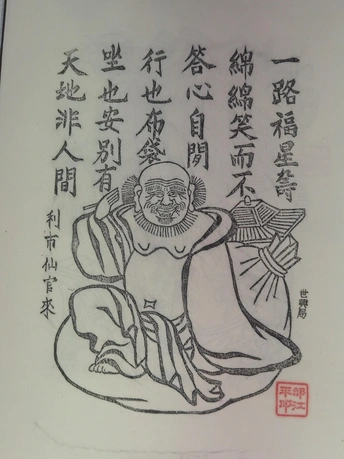 一路福星壽
綿綿笑而不
答心自閒
行也布袋
坐也安別有
天地非人間
利市仙官來
世興局